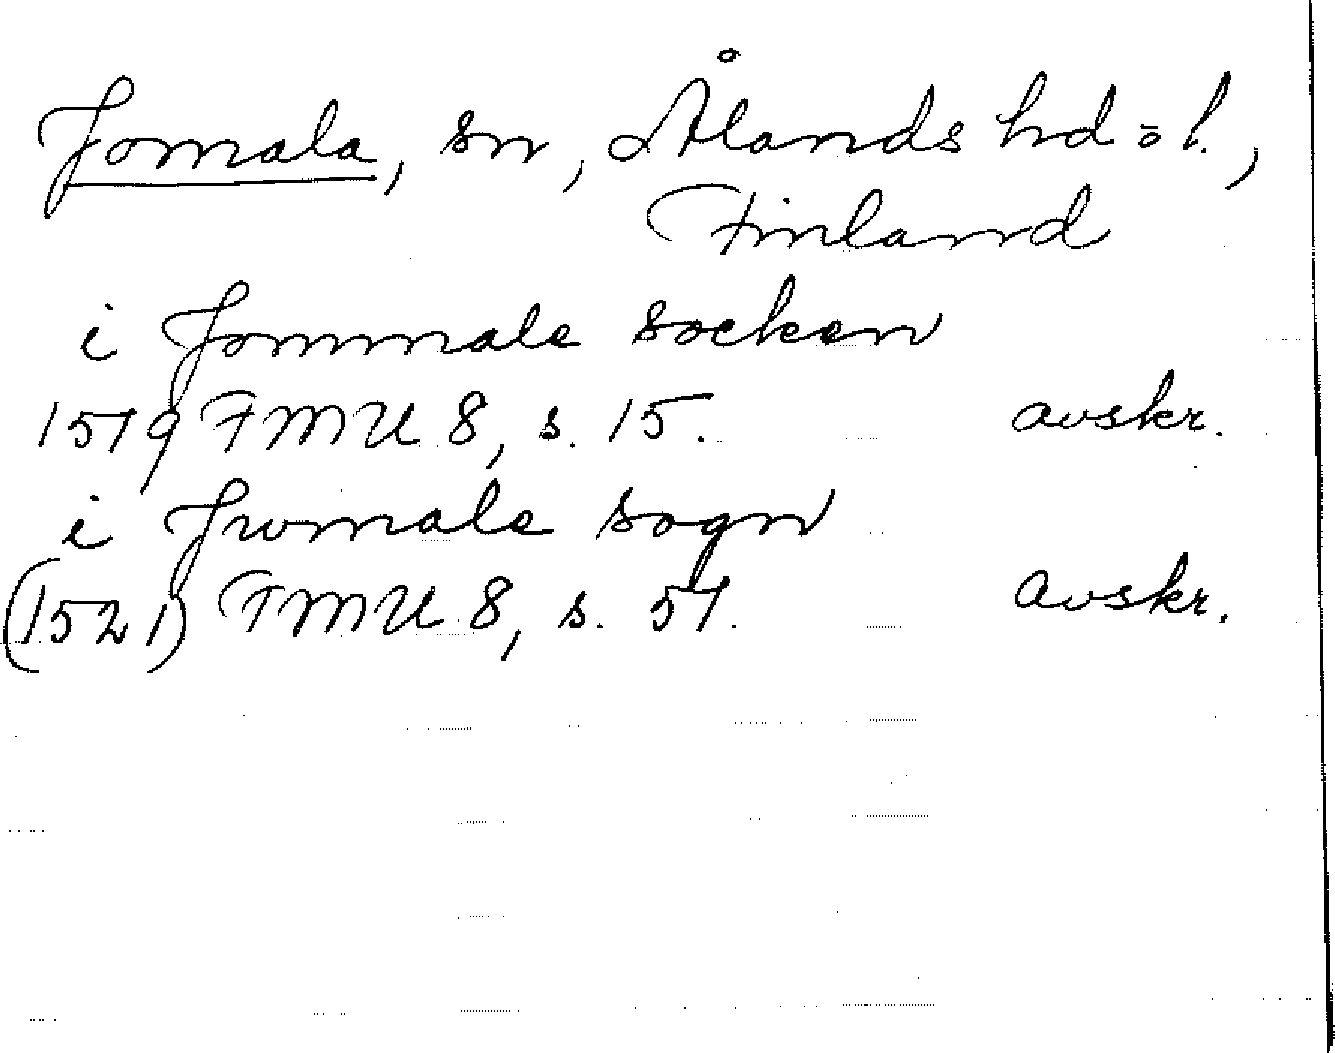 Jomala, sn, Ålands hd ö l.,
Finland
i Jommale socken
1519 FMU 8, s. 15. avskr.
i Jwmale sogn
(1521) FMU 8, s. 51. avskr.